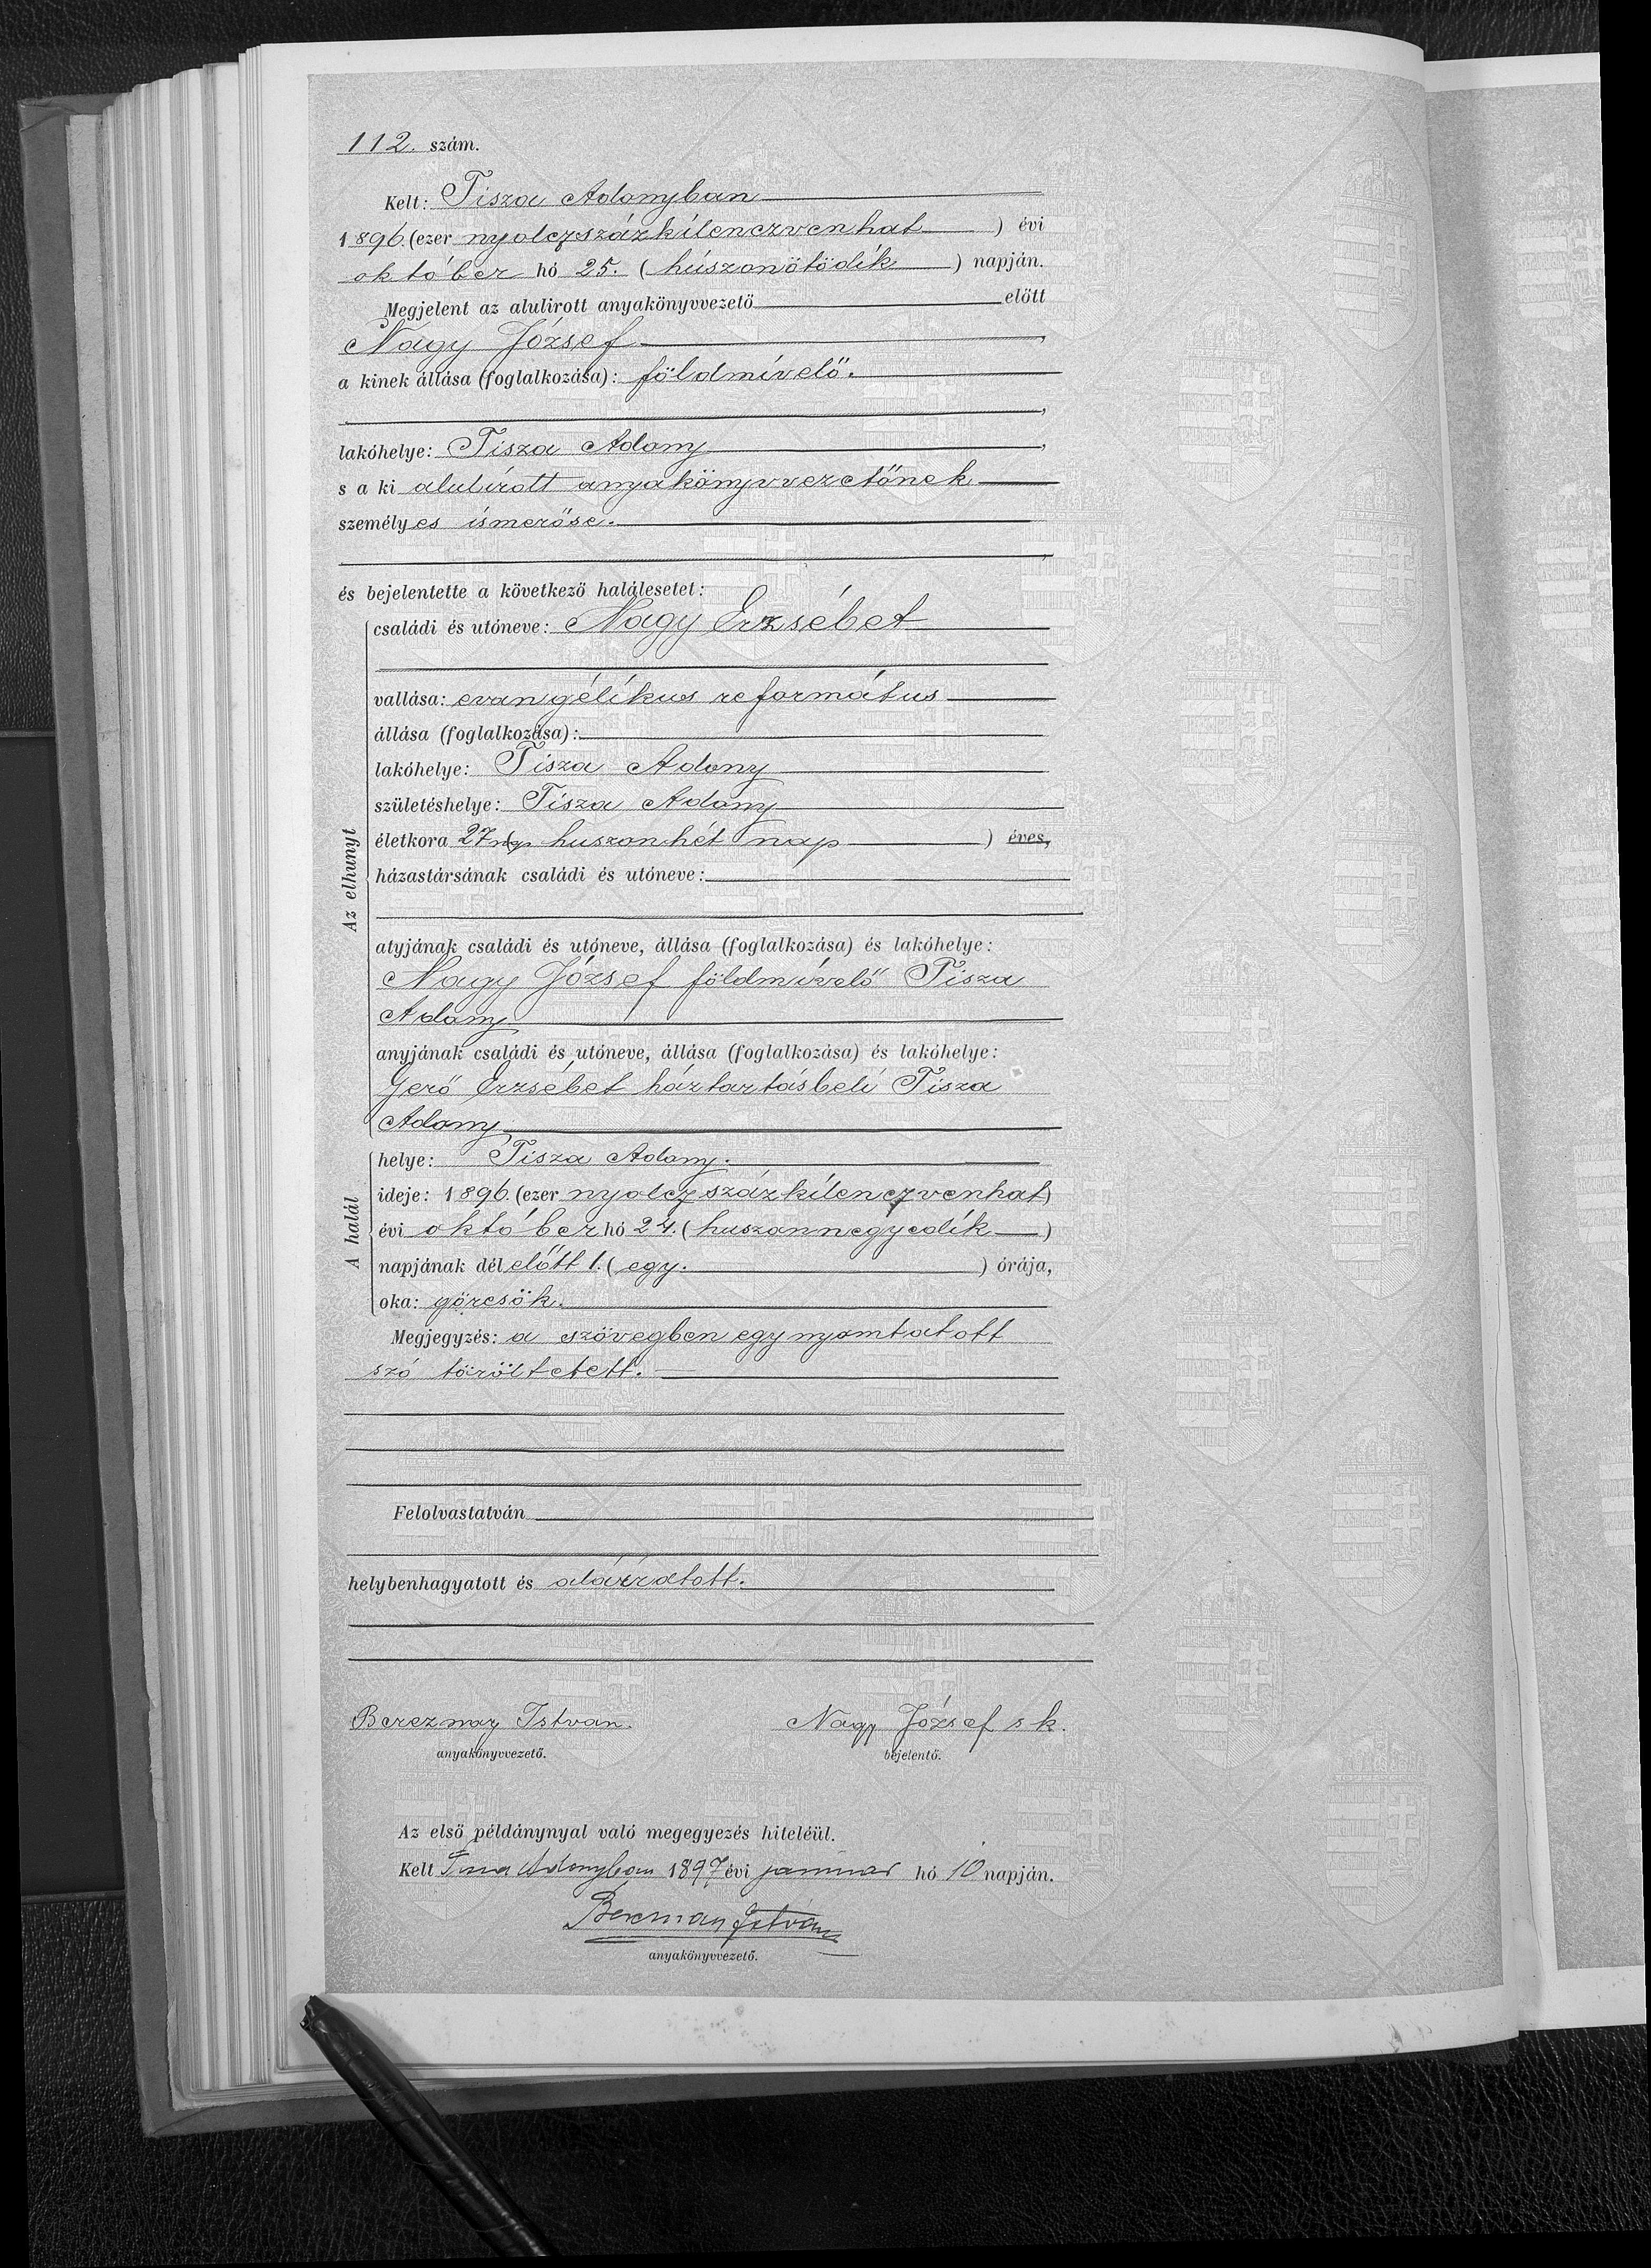 112. szám.
Kelt: Tisza Adonyban
1896. (ezer nyolczszázkilenczvenhat ) évi
október hó 25. ( húszonötödik ) napján.
Megjelent az alulirott anyakönyvvezető előtt
Nagy József ,
a kinek állása (foglalkozása): földmívelő.
,
lakóhelye: Tisza Adony ,
s a ki alulírott anyakönyvvezetőnek
személyes ismerőse.
,
és bejelentette a következő halálesetet:
Az elhunyt
családi és utóneve: Nagy Erzsébet
vallása: evangélikus református
állása (foglalkozása):
lakóhelye: Tisza Adony
születéshelye: Tisza Adony
életkora 27 nap huszonhét nap ) éves,
házastársának családi és utóneve:
atyjának családi és utóneve, állása (foglalkozása) és lakóhelye:
Nagy József földmívelő Tisza
Adony
anyjának családi és utóneve, állása (foglalkozása) és lakóhelye:
Gerő Erzsébet háztartásbeli Tisza
Adony
A halál
helye: Tisza Adony.
ideje: 1896. (ezer nyolczszázkilenczvenhat)
évi október hó 24. ( huszonnegyedik )
napjának délelőtt 1. ( egy. ) órája,
oka: görcsök.
Megjegyzés: a szövegben egy nyomtatott
szó töröltetett.
Felolvastatván
helybenhagyatott és aláíratott.
Berezmay Istvan. Nagy József s k.
anyakönyvvezető. bejelentő.
Az első példánynyal való megegyezés hiteléül.
Kelt Tisza Adonyban 1897 évi januar hó 10 napján.
Berezmay István
anyakönyvvezető.